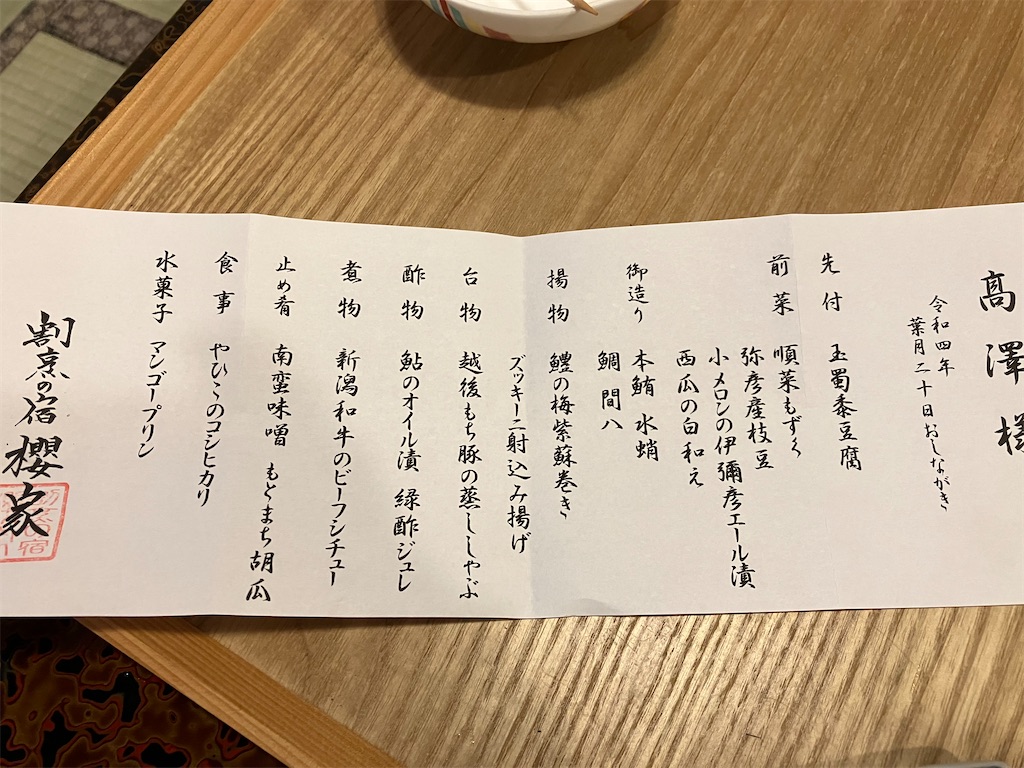 高澤様
令和四年
葉月二十日おしながき
先付 玉蜀黍豆腐
前菜 順菜もずく
弥彦産枝豆
小メロンの伊彌彦エール漬
西瓜の白和え
御造り 本鮪 水蛸
鯛 間八
揚物 鱧の梅紫蘇巻き
ズッキーニ射込み揚げ
台物 越後もち豚の蒸ししゃぶ
酢物 鮎のオイル漬 緑酢ジュレ
煮物 新潟和牛のビーフシチュー
止め肴 南蛮味噌 もとまち胡瓜
食事 やひこのコシヒカリ
水菓子 マンゴープリン
割烹の宿 櫻家